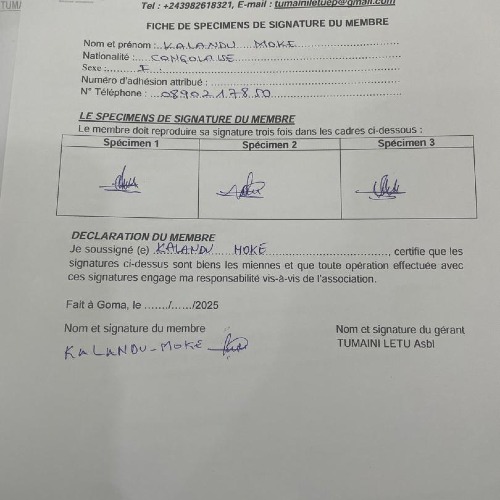 TUMA
Tel : +243982618321, E-mail : tumainiletuep@gmail.com
FICHE DE SPECIMENS DE SIGNATURE DU MEMBRE
Nom et prénom : KALANDU MOKE
Nationalité : CONGOLAISE
Sexe : F
Numéro d'adhésion attribué :
N° Téléphone : 0890217850
LE SPECIMENS DE SIGNATURE DU MEMBRE
Le membre doit reproduire sa signature trois fois dans les cadres ci-dessous :
Spécimen 1 Spécimen 2 Spécimen 3
DECLARATION DU MEMBRE
Je soussigné (e) KALANDU MOKE, certifie que les
signatures ci-dessus sont biens les miennes et que toute opération effectuée avec
ces signatures engage ma responsabilité vis-à-vis de l'association.
Fait à Goma, le ......./....../2025
Nom et signature du membre Nom et signature du gérant
KALANDU-MOKE TUMAINI LETU Asbl